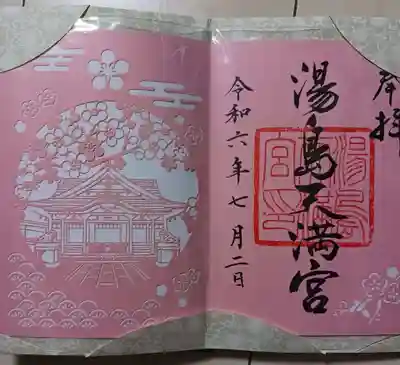 奉拝
湯島天満宮
令和六年七月二日